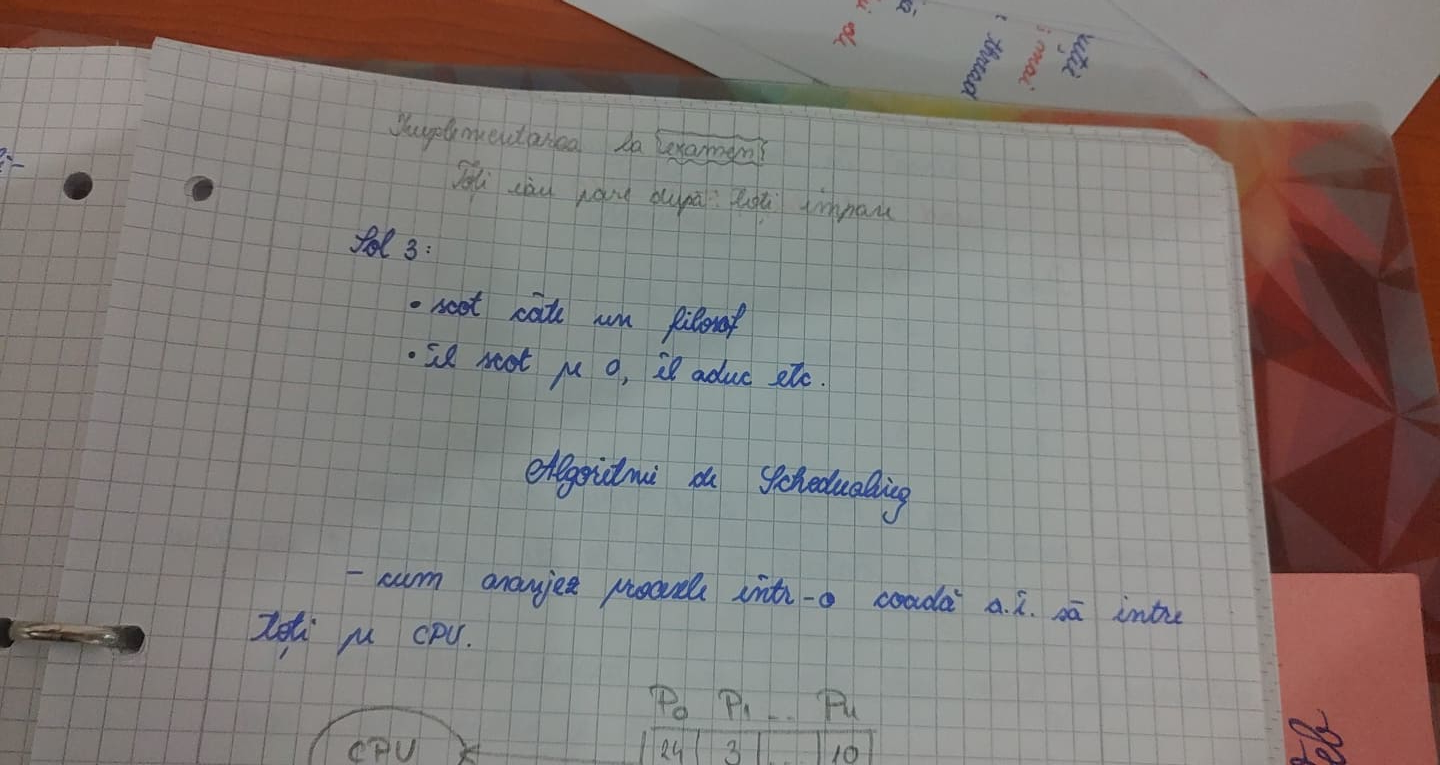 Implementarea la examen
Toți cei pare după toți impari
Sol 3:
• scot câte un filosof
• îl scot pe 0, îl aduc etc.
Algoritmi de Schedualing
- cum aranjez procesele într-o coadă a.î. să intre
toți pe CPU.
P0 P1 ... Pn
CPU 24 3 ... 10
thread
mai